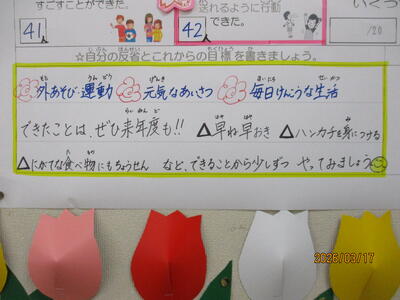 すごすことができた。
41人
送れるように行動
できた。
42人
いくつ
/20
☆自分の反省とこれからの目標を書きましょう。
外あそび・運動 元気なあいさつ 毎日けんこうな生活
できたことは、ぜひ来年度も!! △早ね早おき △ハンカチを身につける
△にがてな食べ物にもちょうせん など、できることから少しずつ やってみましょう
2026/03/17